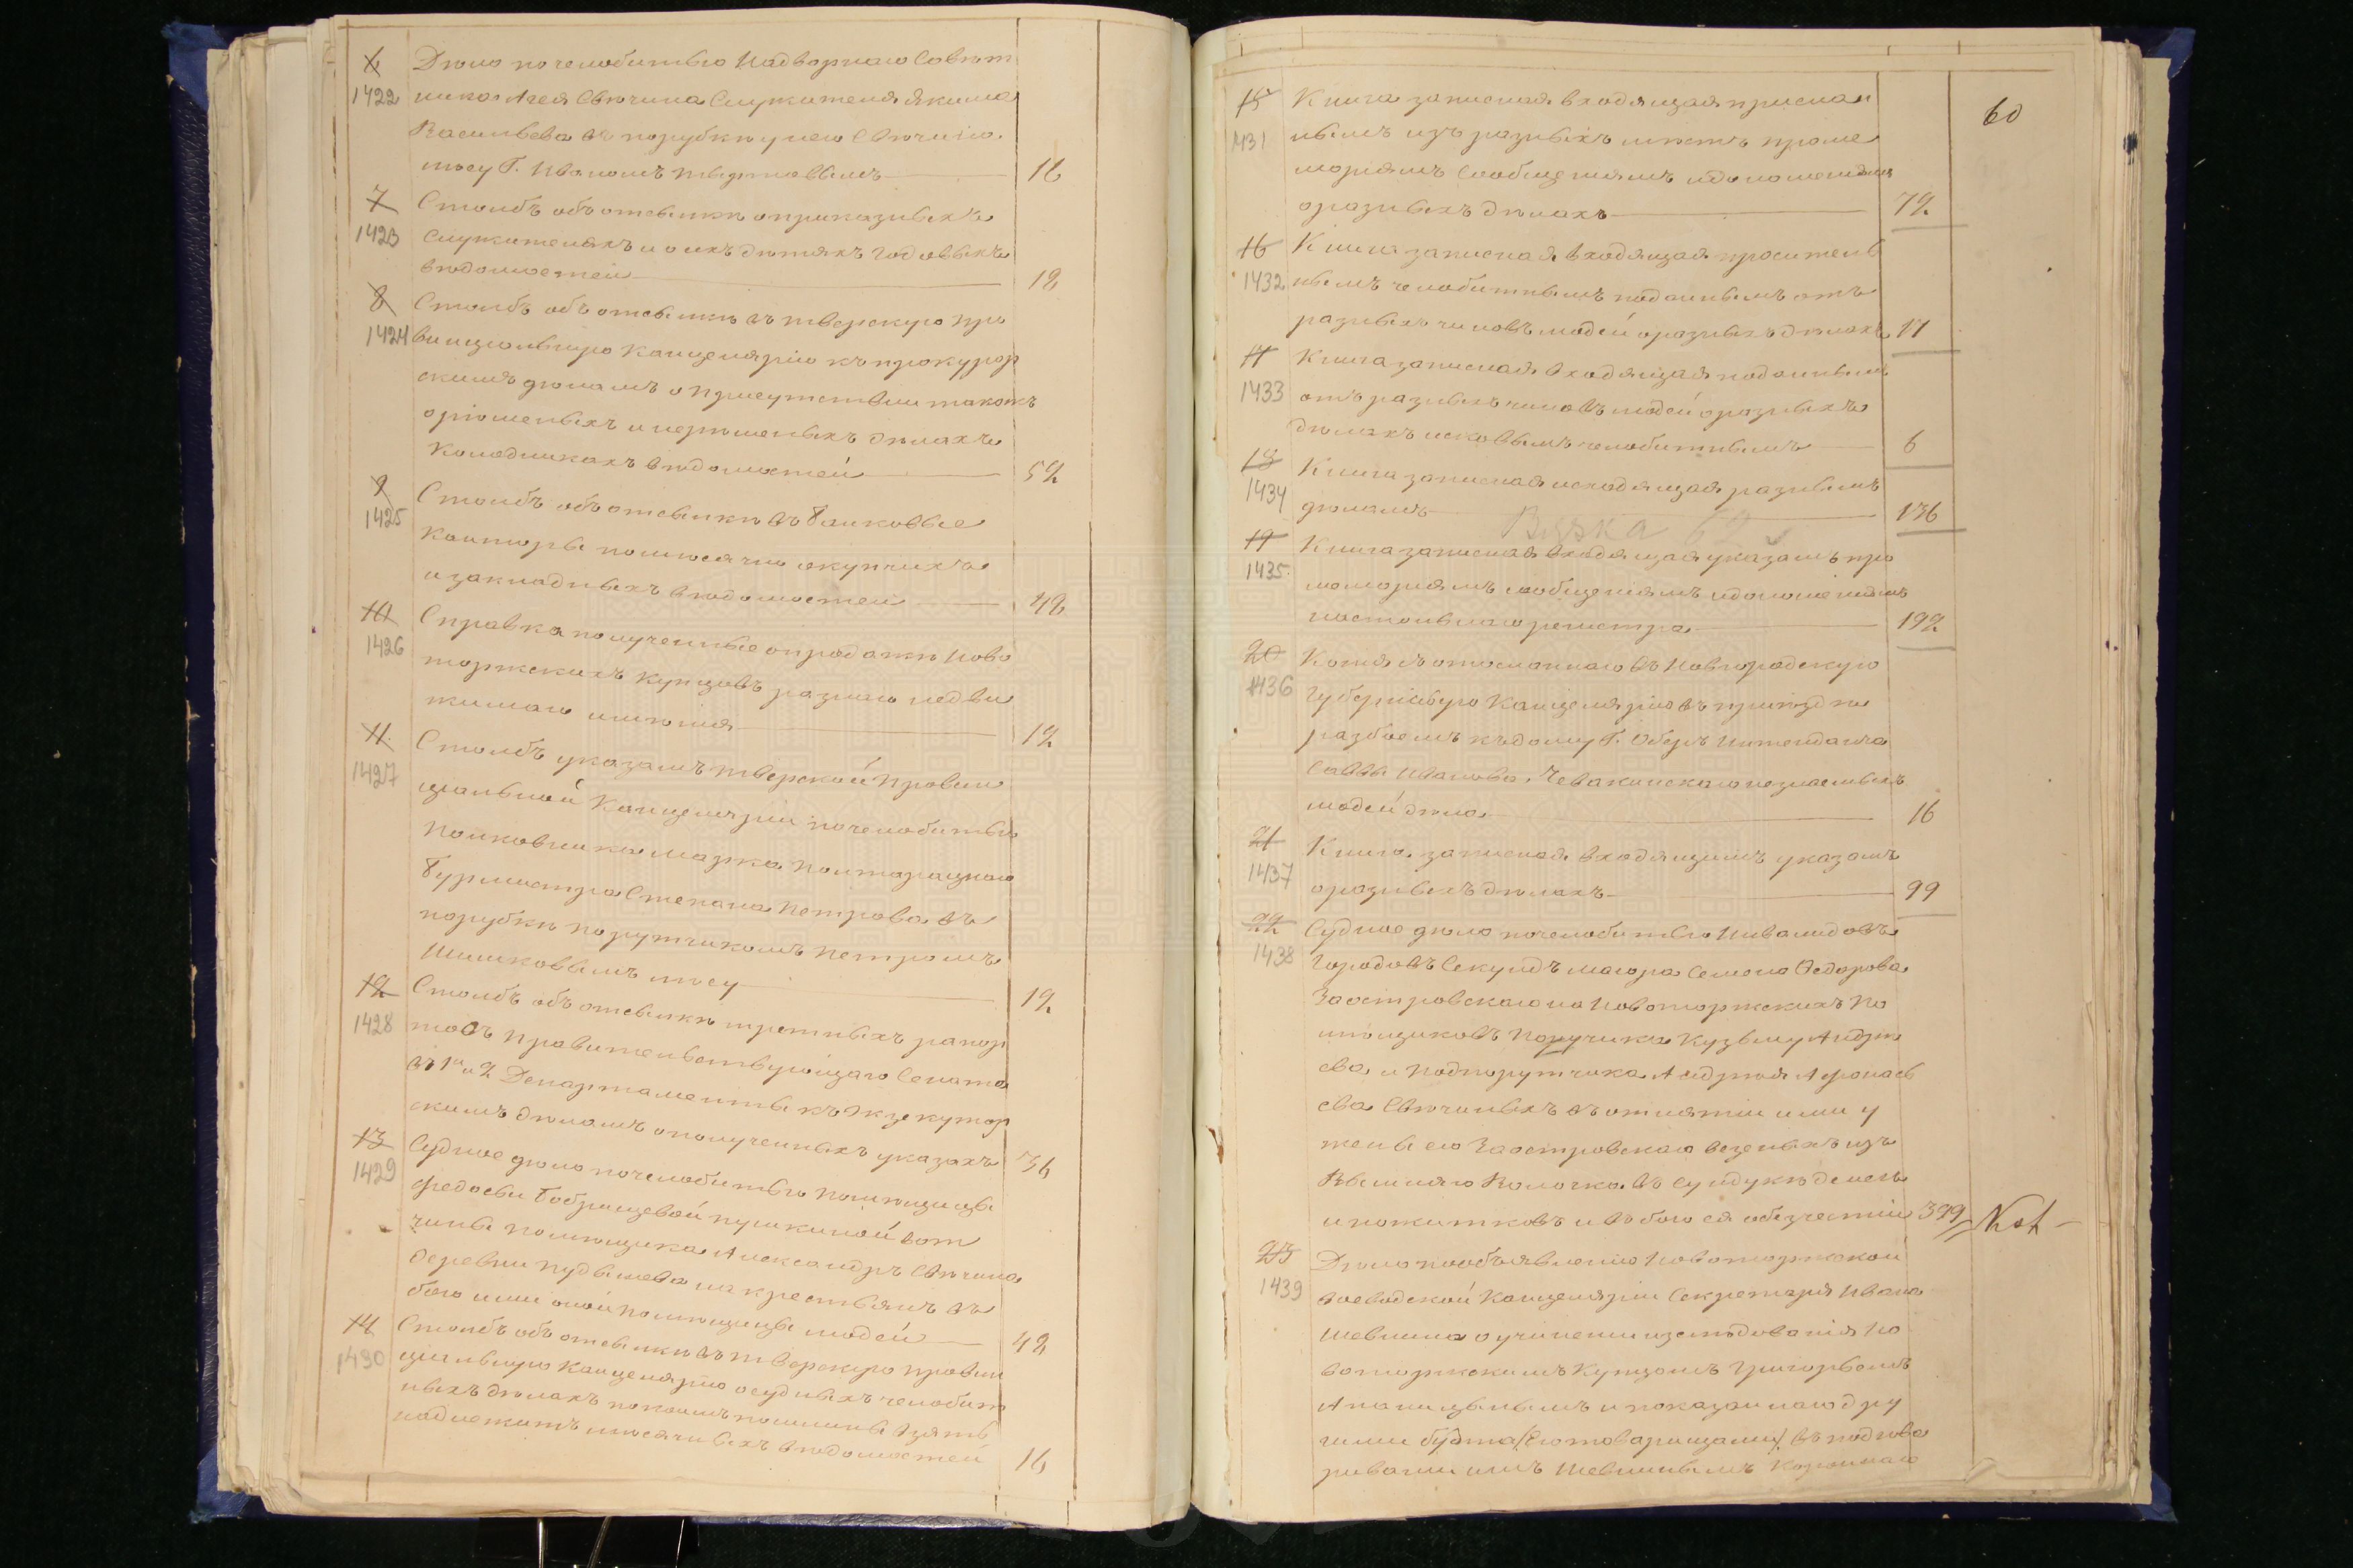 6 Дѣло по челобитью Надворнаго Совѣт
1422 ника Агея Свѣчина Служителя Якима
Васильева въ порубкѣ у него Свѣчина
лѣсу Г. Иваномъ 16
7 Столбъ объ отсылкѣ о приказныхъ
1423 служителяхъ и о ихъ дѣтяхъ годовыхъ
вѣдомостей 12
8 Столбъ объ отсылкѣ въ тверскую про
1424 винціальную Канцелярію къ прокурор
скимъ дѣламъ о присутствіи также
орѣшеныхъ и нерѣшеныхъ дѣлахъ
Колодникахъ вѣдомостей 52
9 Столбъ объ отсылкѣ въ банковые
1425 Конторы помѣсячно окупчихъ
и закладныхъ вѣдомостей 42
10 Справка полученные опродажи Ново
1426 торжскихъ купцовъ разнаго недви
жимаго имѣнія 12
11 Столбъ указамъ тверской Провин
1427 ціальной Канцеляріи по челобитью
Полковника Марка Полторацкаго
бурмистра Степана Петрова въ
порубкѣ порутчикомъ Петромъ
Шишковымъ лѣсу 12
12 Столбъ объ отсылкѣ третныхъ рапор
1428 товъ Правительствующаго Сената
въ 1й и 2 Департаменты къ Экзекутор
скимъ дѣламъ ополученныхъ указахъ 36
13 Судное дѣло по челобитью Помѣщицы
1429 Федосьи Бобрищевой пушкиной вот
чины помѣщика Александръ Свѣчина
деревни Пудышева на крестьянъ въ
бою ими оной помѣщицы людей 42
14 Столбъ объ отсылкѣ въ тверскую провин
1430 ціальную Канцелярію осудныхъ челобит
ныхъ дѣлахъ покоимъ пошлины взять
надлежитъ мѣсячныхъ вѣдомостей 16
60
15 Книга записная входящая прислан
1431 нымъ изъ разныхъ мѣстъ проме
моріямъ сообщеніямъ идоношеніямъ
оразныхъ дѣлахъ 72
16 Книга записная входящая проситель
1432 нымъ челобитнымъ поданнымъ отъ
разныхъ чиновъ людей оразныхъ дѣлахъ 11
17 Книга записная входящая поданнымъ
1433 отъ разныхъ чиновъ людей оразныхъ
дѣлахъ исковымъ челобитнымъ 6
18 Книга записная исходящая разнымъ
1434 дѣламъ 136
Вязка 62
19 Книга записная входящая указамъ про
1435 меморіямъ сообщеніямъ идоношеніямъ
настольнаго регистра 192
20 Копія съ отосланнаго въ Новгородскую
1436 Губернскую Канцелярію въ пріѣздѣ
разбоемъ къ дому Г. Оберъ Интенданта
Саввы Иванова Чевакинскаго незнаемыхъ
людей дѣла 16
21 Книга записная входящимъ указамъ
1437 оразныхъ дѣлахъ 99
22 Судное дѣло по челобитью Инвалидовъ
1438 городовъ Секундъ маіора Семена Федорова
Заостровскаго на Новоторжскихъ По
мѣщиковъ Поручика Кузьму Андре
ева и Подпорутчика Андрея Афонась
ева Свѣчиныхъ въ отнятіи ими у
жены его Заостровскаго везеныхъ изъ
Вышняго Волочка въ сундукѣ денегъ
и пожитковъ и въ бою ея обезчестіи 399 Not
23 Дѣло пообъявленію Новоторжской
1439 Воеводской Канцеляріи Секретаря Ивана
Шевлина о учиненіи изслѣдованія Но
воторжскимъ Купцомъ Григорьемъ
и показаннаго дру
гими будто (Его товарищами) въ подгова
риваніи имъ Шевлинымъ